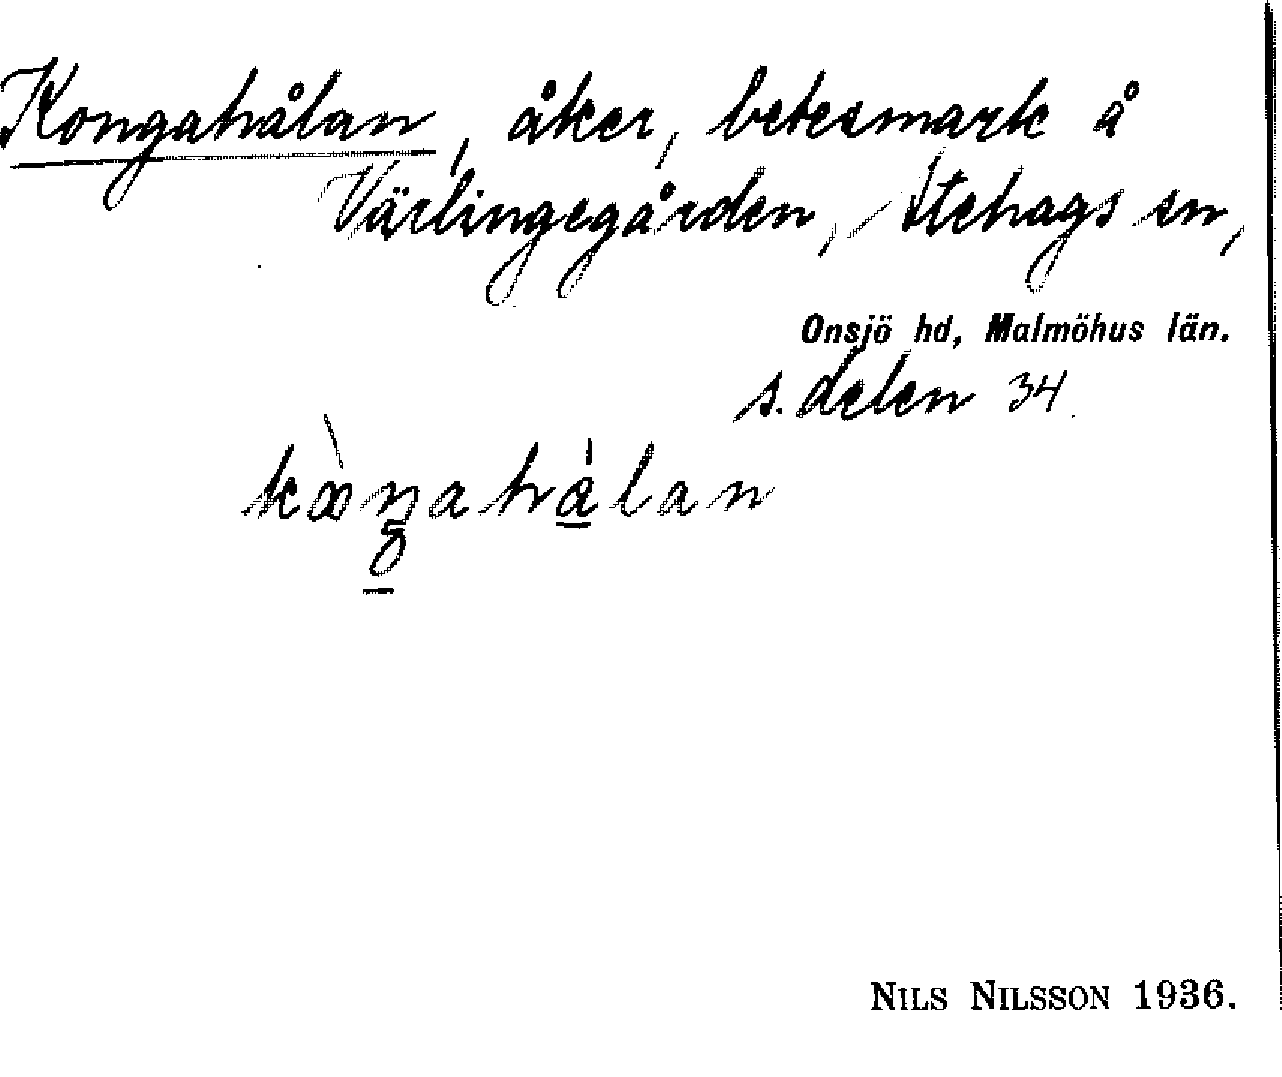 Kongahålan, åker, betesmark å
Värlingegården, Stehags sn,
Onsjö hd, Malmöhus län.
s. delen 34.
NILS NILSSON 1936.